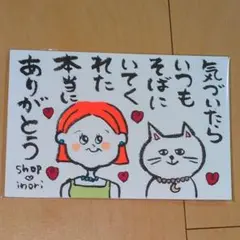 気づいたら
いつも
そばに
いてく
れた
本当に
ありがとう
shop
inori